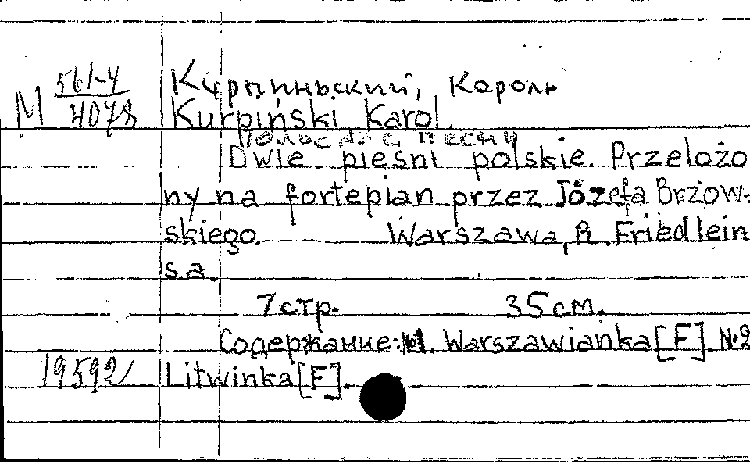 М 561-4
4078
Курпиньский, Кароль
Kurpiński Karol
Dwie pieśni polskie. Przełożo
ny na fortepian przez Józefa Brżow-
skiego. Warszawa, R. Friedlein
s.a.
7 стр. 35 см.
Содержание: №1. Warszawianka [F]. №2
19592 Litwinka [F].